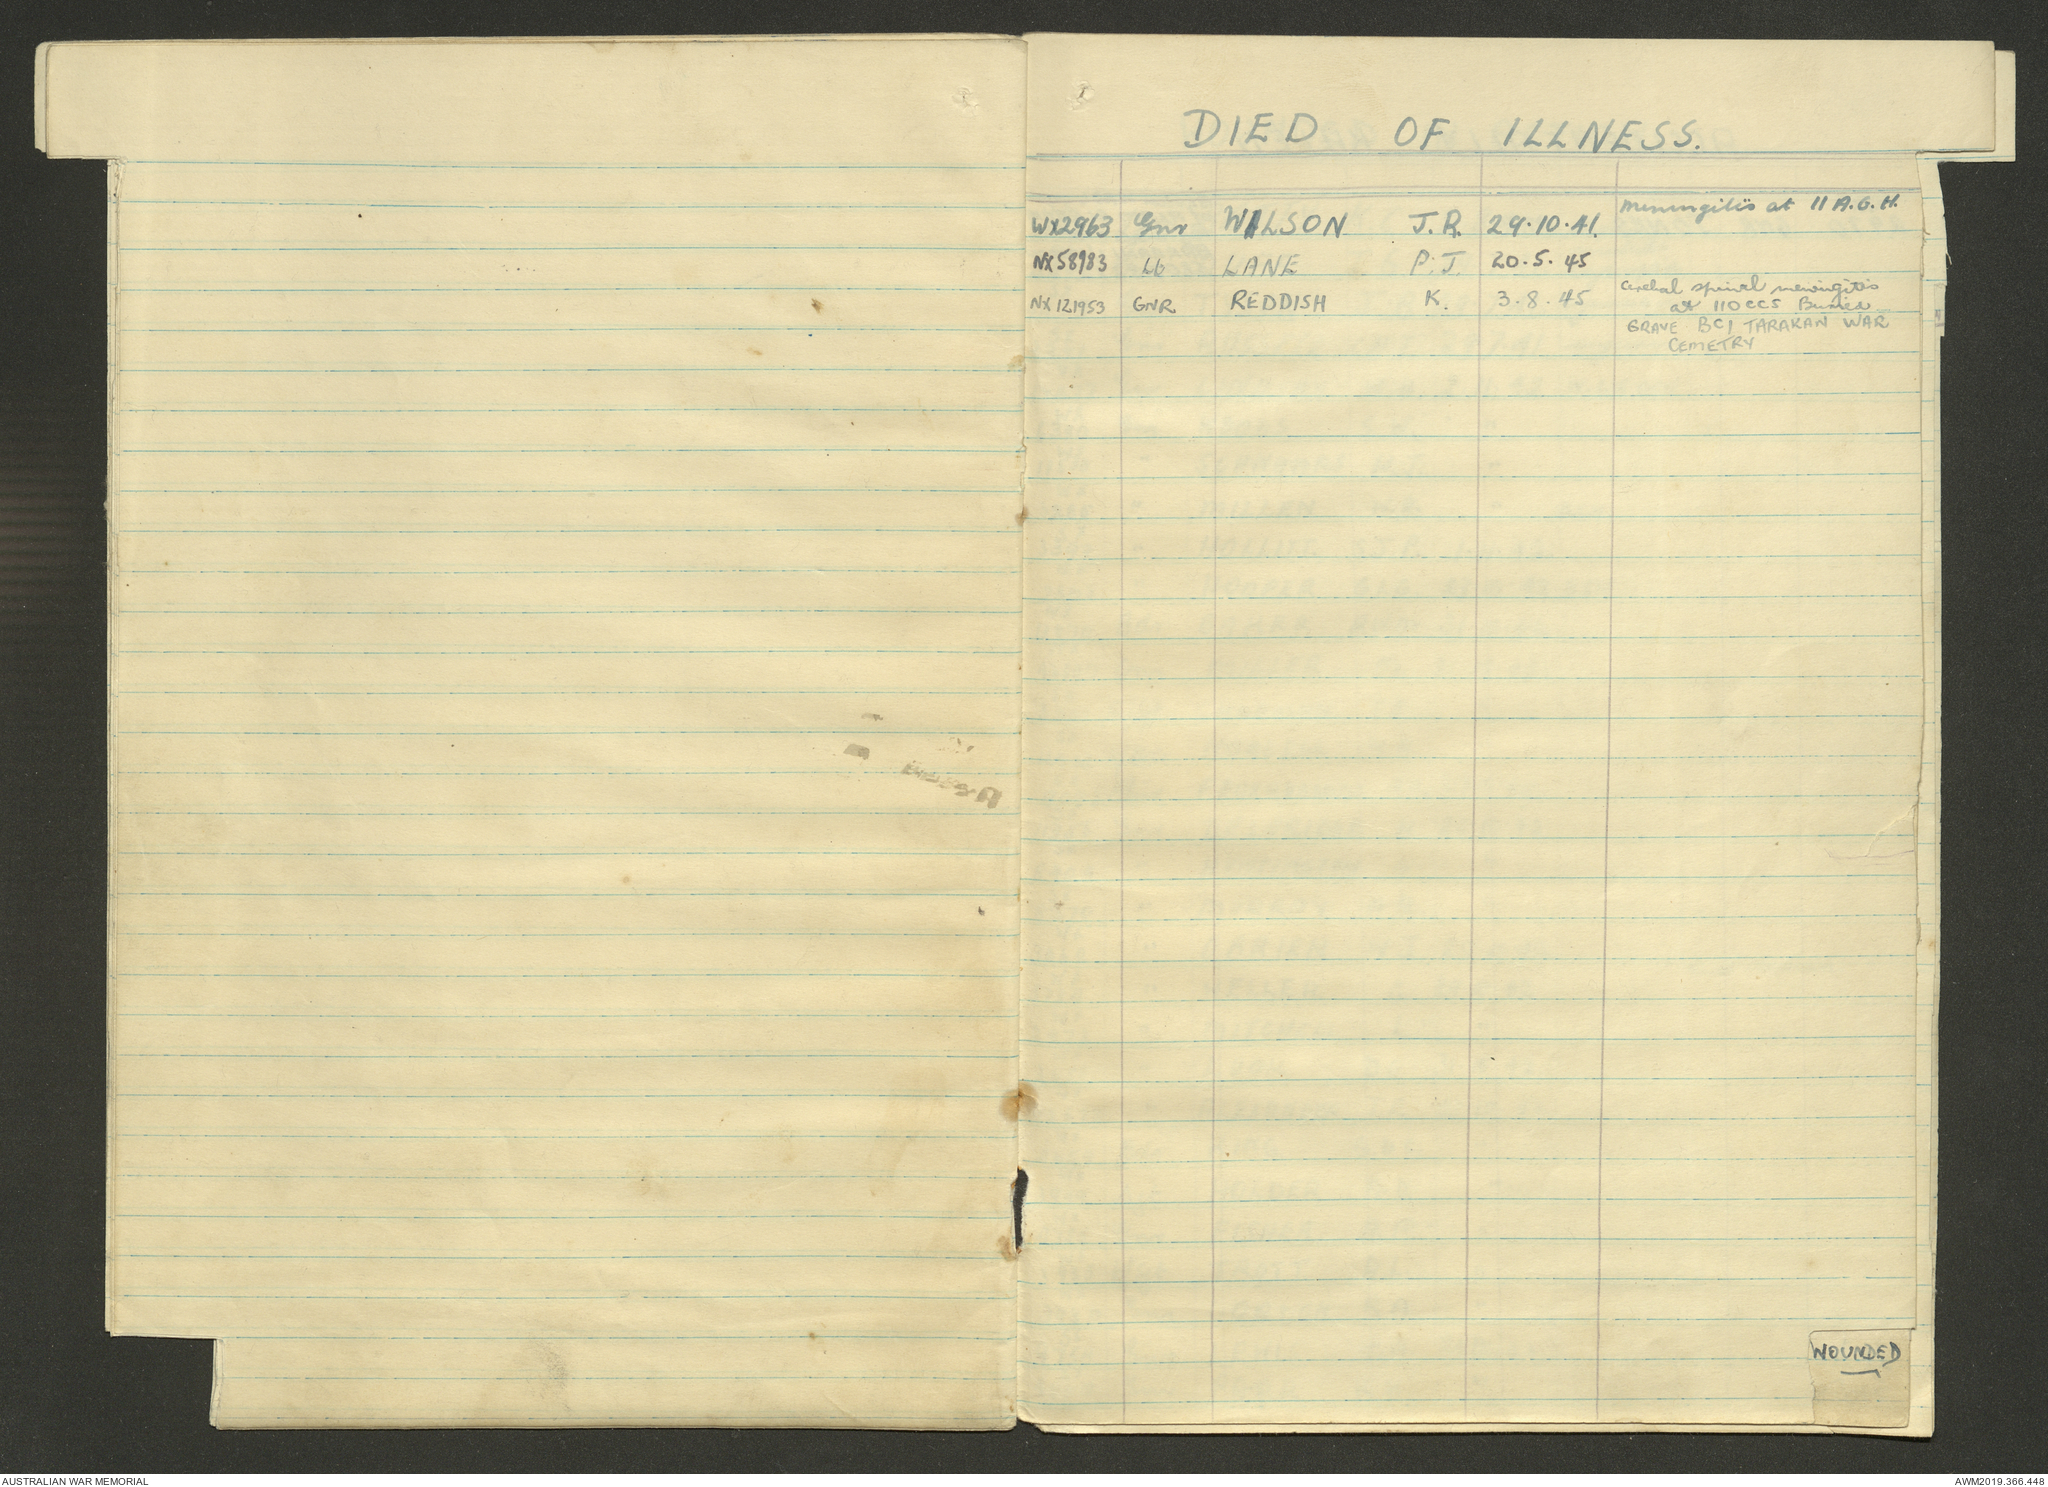 DIED OF ILLNESS.
WX2963 Gnr WILSON J.R. 29.10.41. Meningitis at 11 A.G.H.
NX58983 Lt LANE P.J. 20.5.45
NX121953 GNR REDDISH K. 3.8.45 Cerebal spinal meningitis
at 110 CCS Buried
GRAVE BC1 TARAKAN WAR
CEMETRY
WOUNDED
AUSTRALIAN WAR MEMORIAL
AWM2019.366.448